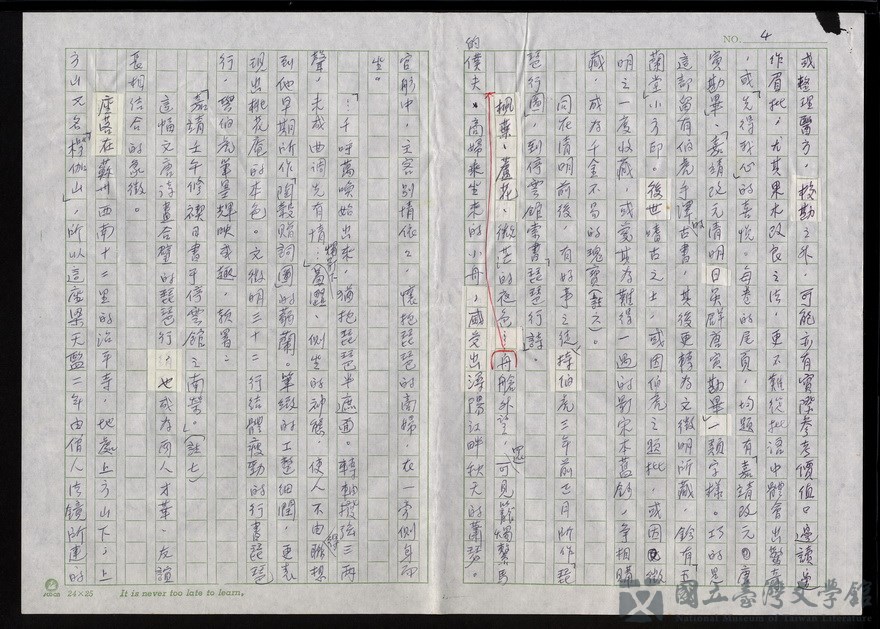 NO. 4
或整理醫方,校勘之外,可能亦有實際參考價值。邊讀邊
作眉批,尤其果木改良之法,更不難從批語中體會出驚喜
,或先得我心的喜悅。每卷的尾頁,均題有「嘉靖改元唐
寅勘畢」、「嘉靖改元清明日吳群唐寅勘畢」一類字樣。巧的是
這部留有伯虎手澤的古書,其後更轉為文徵明所藏,鈐有「玉
蘭堂」小方印。後世嗜古之士,或因伯虎之題批,或因徵
明之一度收藏,或寶其為難得一遇的影宋本舊鈔,爭相購
藏,成為千金不易的瑰寶(註六)。
同在清明前後,有好事之徒,持伯虎三年前七月所作「琵
琶行圖」,到停雲館索書「琵琶行」詩。
楓葉、蘆花、微茫的夜色……舟艙外望,可見籠燭繫馬
的僕夫、商婦乘坐來的小舟,感受出潯陽江畔秋天的蕭瑟。
官舫中,主客別情依依,懷抱琵琶的商婦,在一旁側身而
坐。
「…千呼萬喚始出來,猶抱琵琶半遮面。轉軸撥弦三兩
聲,未成曲調先有情…」
側坐的神態,使人不由得聯想
到他早期所作「陶穀贈詞圖」的蒻蘭。筆緻的工整細潤,更表
現出桃花庵的本色。文徵明三十二行結體瘦勁的行書琵琶
行,與伯虎筆墨輝映成趣,款署:
「嘉靖壬午修禊日書于停雲館之南榮。」(註七)
這幅文唐詩畫合璧的琵琶行
也成為兩人才華、友誼
長期結合的象徵。
座落在蘇州西南十二里的治平寺,地處上方山下;上
方山又名「楞伽山」,所以這座梁天監二年由僧人法鏡所建的
24×25 It is never too late to learn.
國立臺灣文學館
National Museum of Taiwan Literature